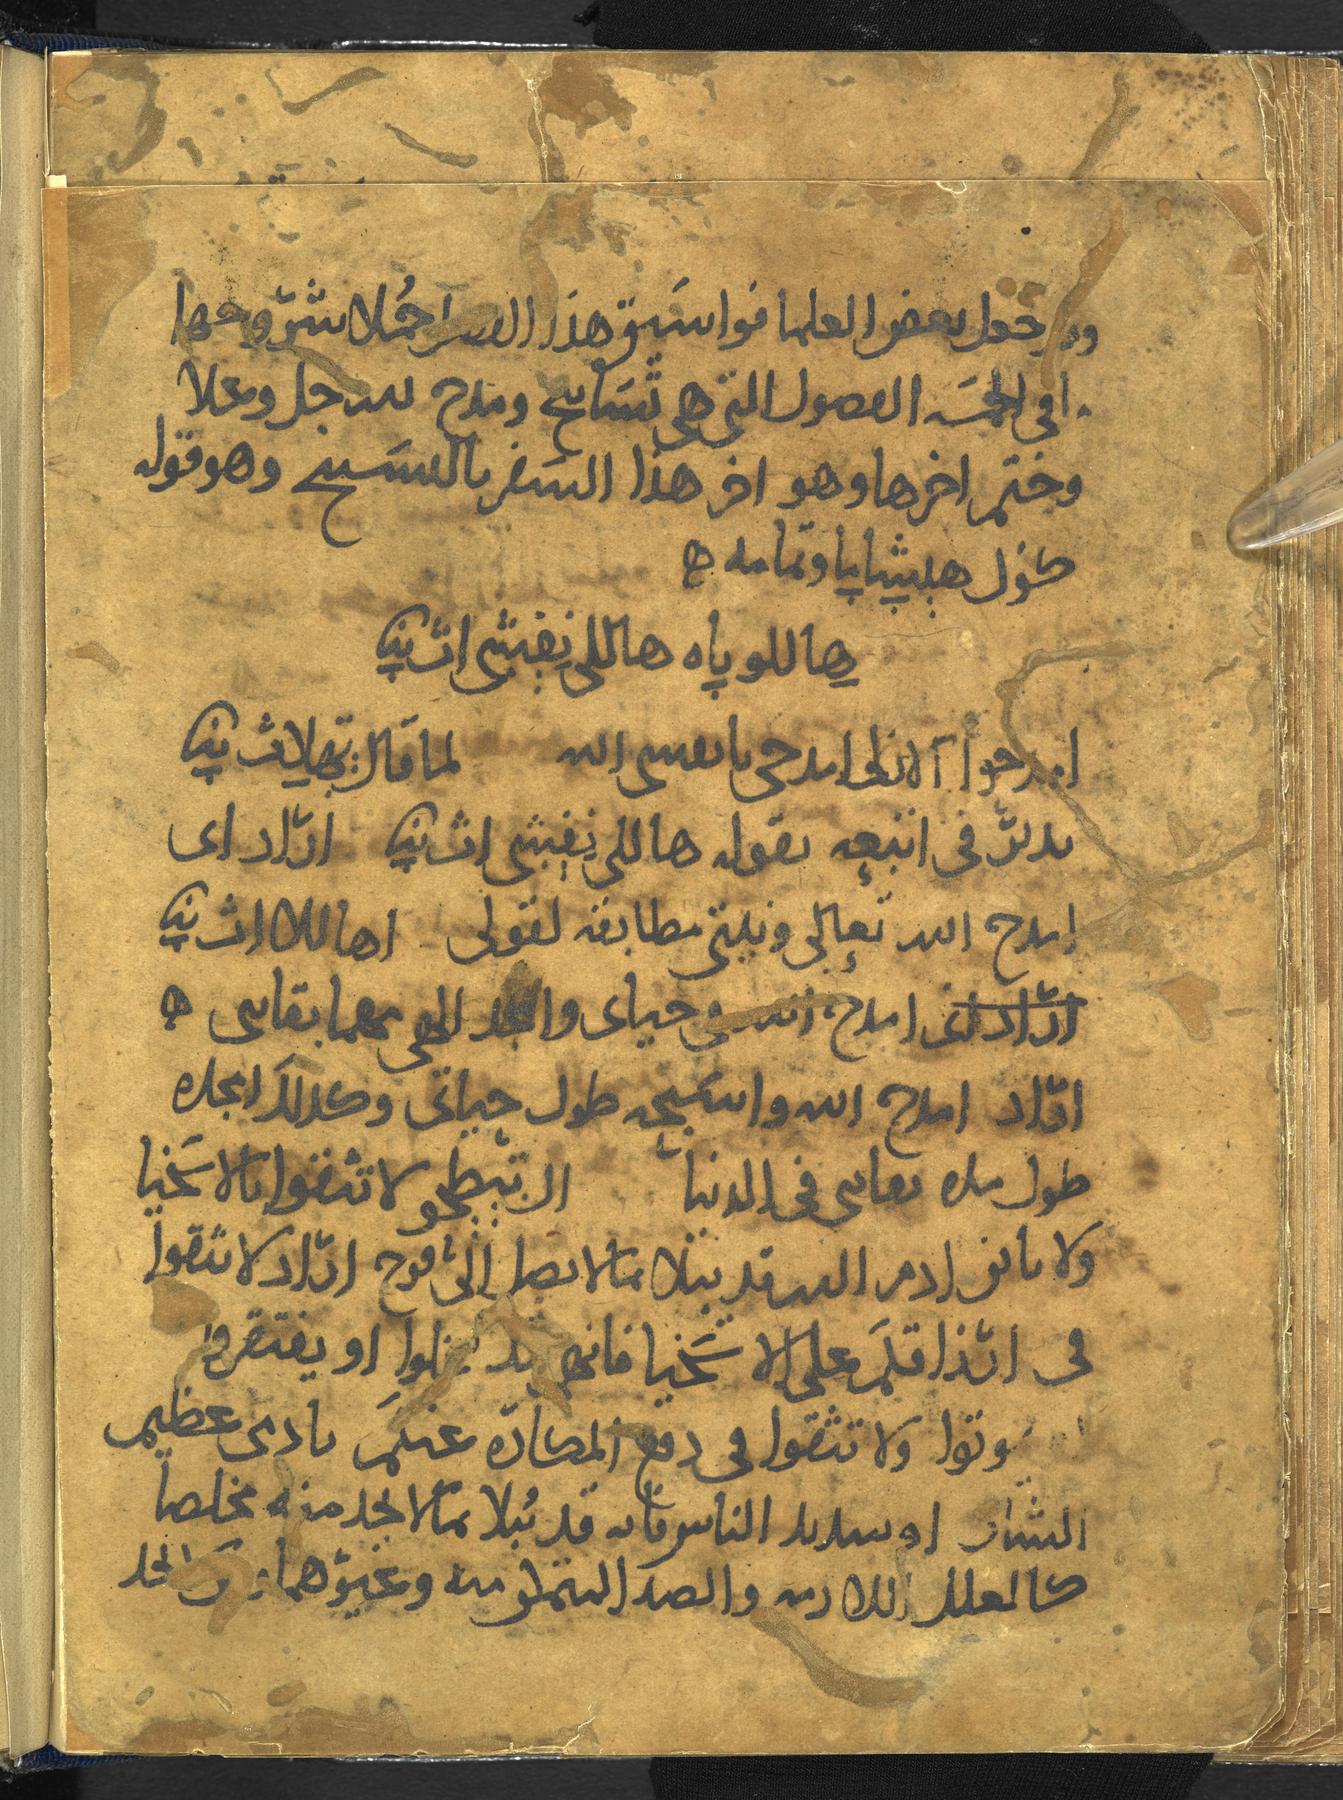 وقد جعل بعض العلما فواسيق هذا السفر جُملا شرّوحها
في الخمسَه الفصول التي هي تسَابيح ومدح لله جل وعلا
وختم اخرها وهو اخر هذا السَفر بالتسَبيح وهو قوله
كول هنيشاما وتمامه ه
هاللوياه هاللي نفشي اث يي
امدحوا الازلى امدحي يا نفسى الله لما قال تهلاث يي
بدلّ في اتبعه بقوله هاللي نفشي اث يي ارّاد اى
امدح الله تعالى ونيتي مطابقه لقولى اهاللا اث يي
ارّاد انى امدح الله في حياى وامجد الهي مهما بقاى ه
ارّاد امدح الله واسَبحه طول حياتى وكذلك امجده
طول مده بقاى فى الدنيا ال تبطحو لا تثقوا بالاسَخيا
ولا بابن ادم الذى قد يبتلا بما لا يصل الى فرج ارّاد لا تثقوا
فى ارّزاقكم على الاسَخيا فانهم قد يبخلوا او يفتقروا
ولا تثقوا فى دفع المكارّه عنكم بادمى عظيم
الشان او سديد الناس فانه قد يُبلا بما لا يجد منه مخلصا
كالعلل اللازمه والصد المتملومه وغيرّهما